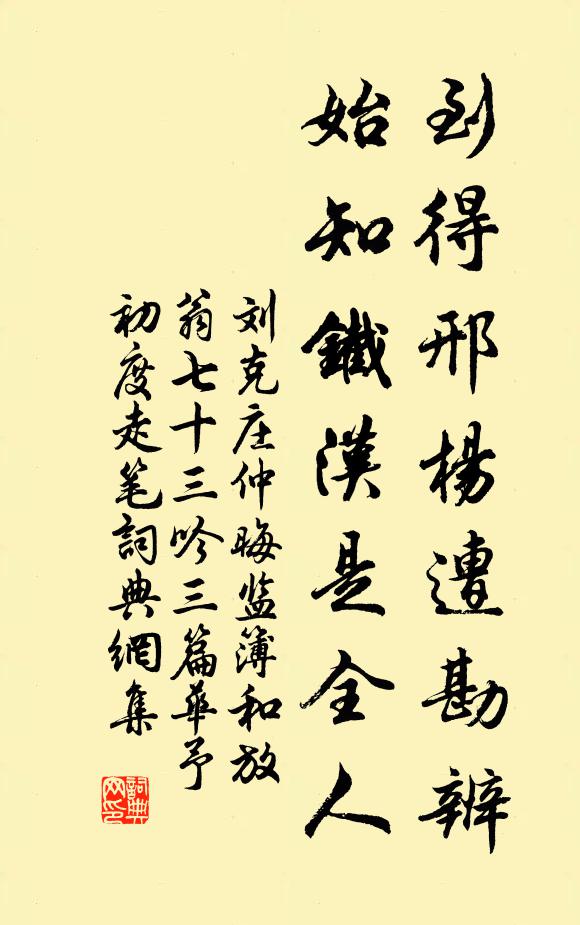 到得邢楊遭勘辨
始知鐵漢是全人
刘克庄仲晦监簿和放
翁七十三吟三篇華予
初度走笔詞典網集
詞典
网印